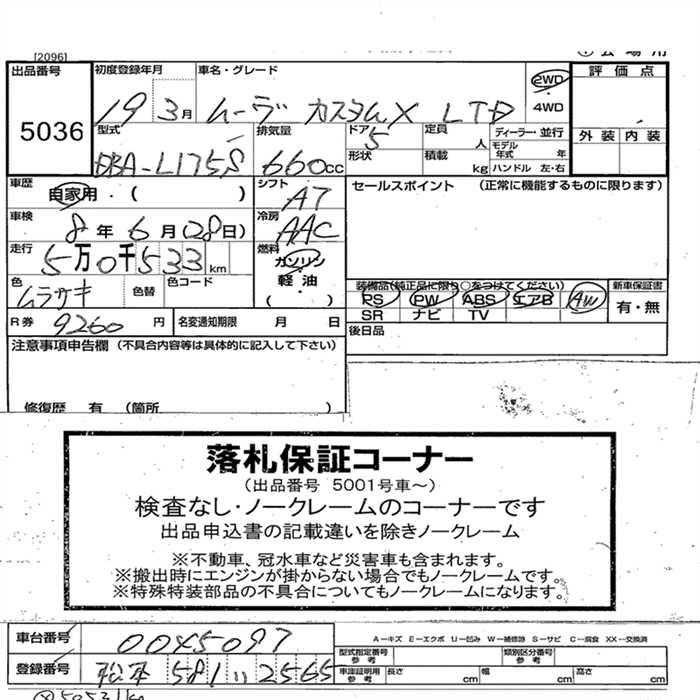 [2096]
出品番号 初度登録年月 車名・グレード 評価点
5036 19 3月 ムーヴ カスタムX LTD 2WD
4WD
型式 排気量 ドア 5 定員 人 ディーラー・並行 外装 内装
DBA-L175S 660cc 形状 積載 kg モデル年式 年
ハンドル 左・右
車歴 自家用・( ) シフト A7 セールスポイント (正常に機能するものに限ります)
車検 8年6月(28日) 冷房 AAC
走行 5万0千533km 燃料 ガソリン
軽油
( )
色 ムラサキ 色替 色コード 装備品(純正品に限り○をつけてください) 新車保証書
PS PW ABS エアB AW 有・無
SR ナビ TV
R券 9260円 名変通知期限 月 日 後日品
注意事項申告欄(不具合内容等は具体的に記入して下さい)
修復歴 有 (箇所 )
落札保証コーナー
(出品番号 5001号車~)
検査なし・ノークレームのコーナーです
出品申込書の記載違いを除きノークレーム
※不動車、冠水車など災害車も含まれます。
※搬出時にエンジンが掛からない場合でもノークレームです。
※特殊特装部品の不具合についてもノークレームになります。
車台番号 0045097 A-キズ E-エクボ U-凹み W-補修跡 S-サビ C-腐食 XX-交換済
型式指定番号 参考 類別区分番号 参考
登録番号 松本 581 い 2565 車庫証明用 参考 長さ cm 幅 cm 高さ cm